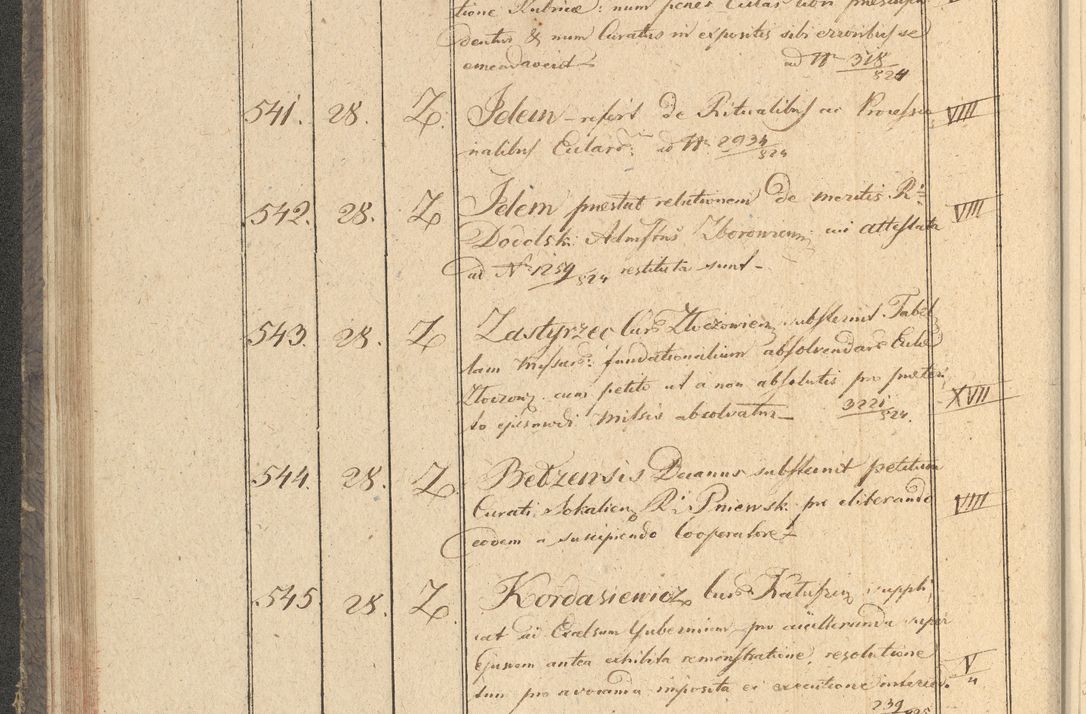 dentur & num Curatus in expositis sibi erroribus se
emendaverit ad Nr 318/824
541. 28. Z. Idem refert de Ritualibus ac Processio VIII
nalibus Eclarum: ad Nr. 2934/824
542. 28. Z Idem praestat relationem de meritis R: VIII
Dodolski Admstris Zborowien cui attestata
ad Nr 1259/824 restituta sunt
543. 28. Z Zastyrzec Cur. Zloczowien substernit Tabel
lam missar: fundationalium absolvendar Eccle
Zloczow. cum petito ut a non absolutis pro praeteri, XVII
to ejusmodi missis absolvatur 3221/824.
544. 28. Z. Betzensis Decanus substernit petitum
Curati Sokalien R: Pniewski pro eliberando VIII
eodem a suscipiendo Cooperatore
545. 28. Z. Kordasiewicz Cur. Katuszen suppli,
cat ad Excelsum Gubernium pro accelleranda super
Ejusdem antea exhibita remonstratione, resolutione V/4
tum pro avocanda imposita ei executione interced.
239/825